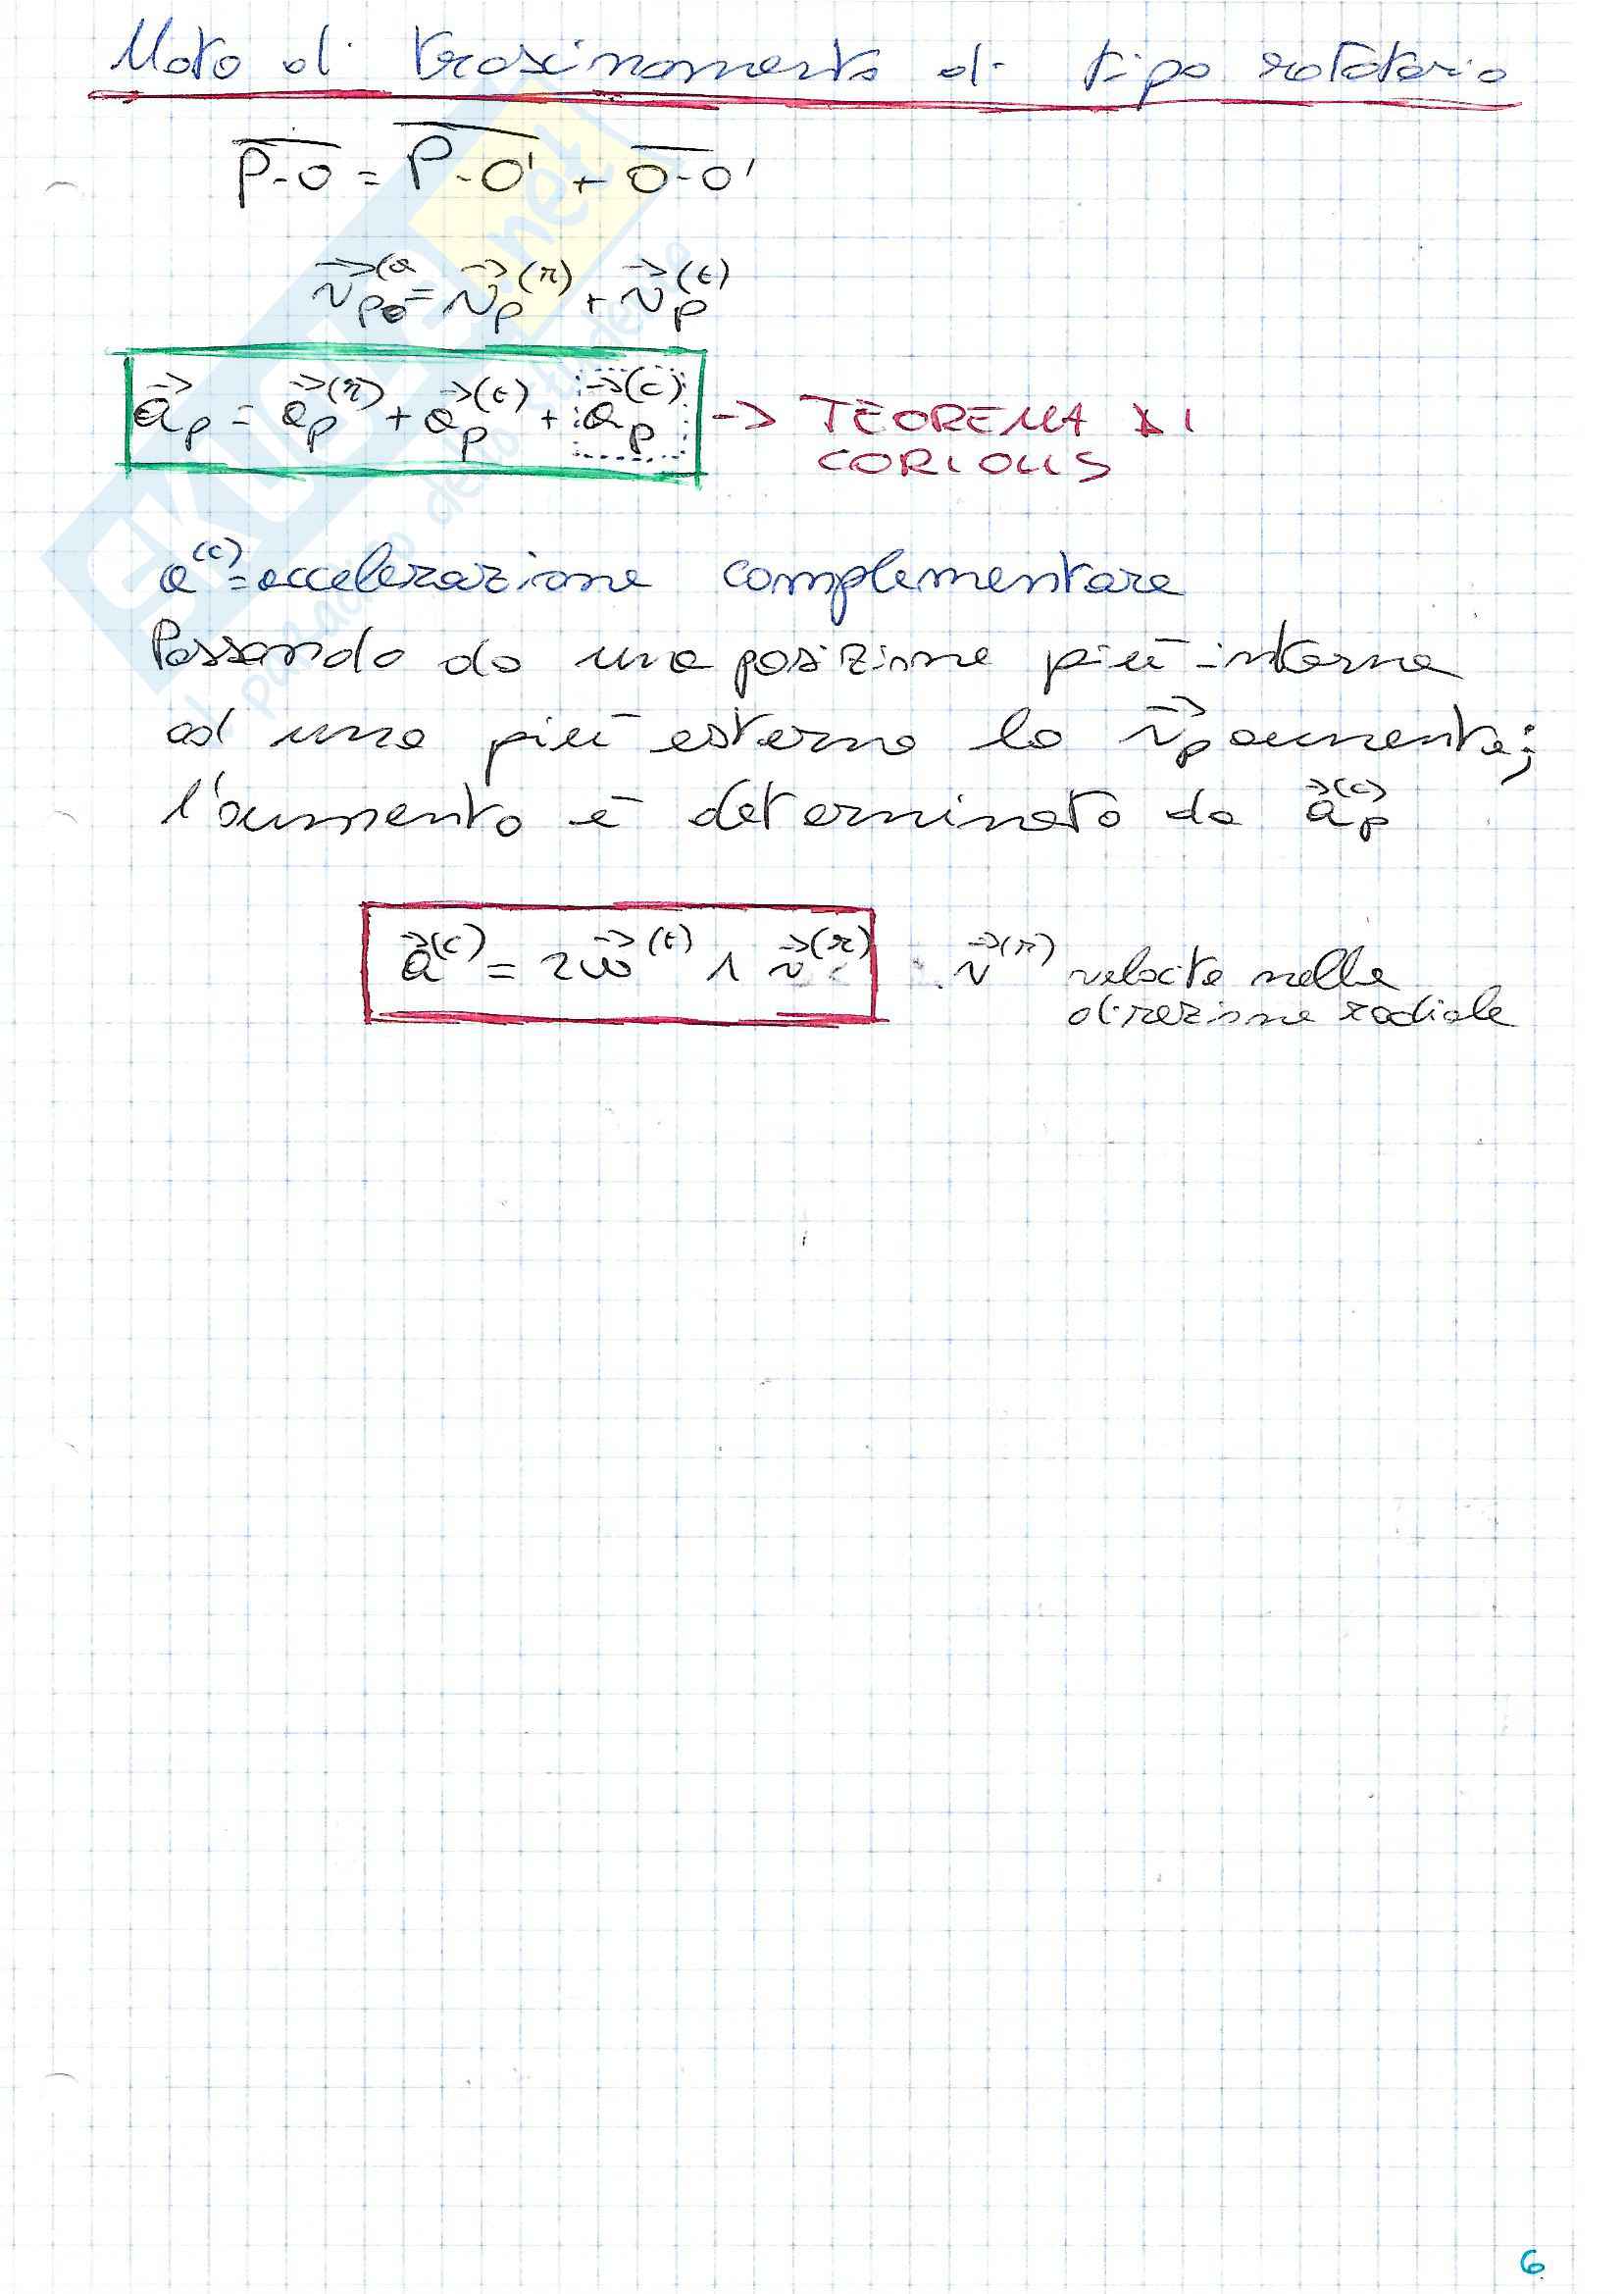 Moto di trascinamento di tipo rotatorio
P-O = P-O' + O-O'
v⃗_P^(a = v⃗_P^(r) + v⃗_P^(t)
a⃗_P = a⃗_P^(r) + a⃗_P^(t) + a⃗_P^(c) -> TEOREMA DI
CORIOLIS
a^(c) = accelerazione complementare
Passando da una posizione più interna
ad una più esterna la v⃗_P aumenta;
l'aumento è determinato da a⃗_P^(c)
a⃗^(c) = 2ω⃗^(t) ∧ v⃗^(r) v⃗^(r) velocità nella
direzione radiale
6